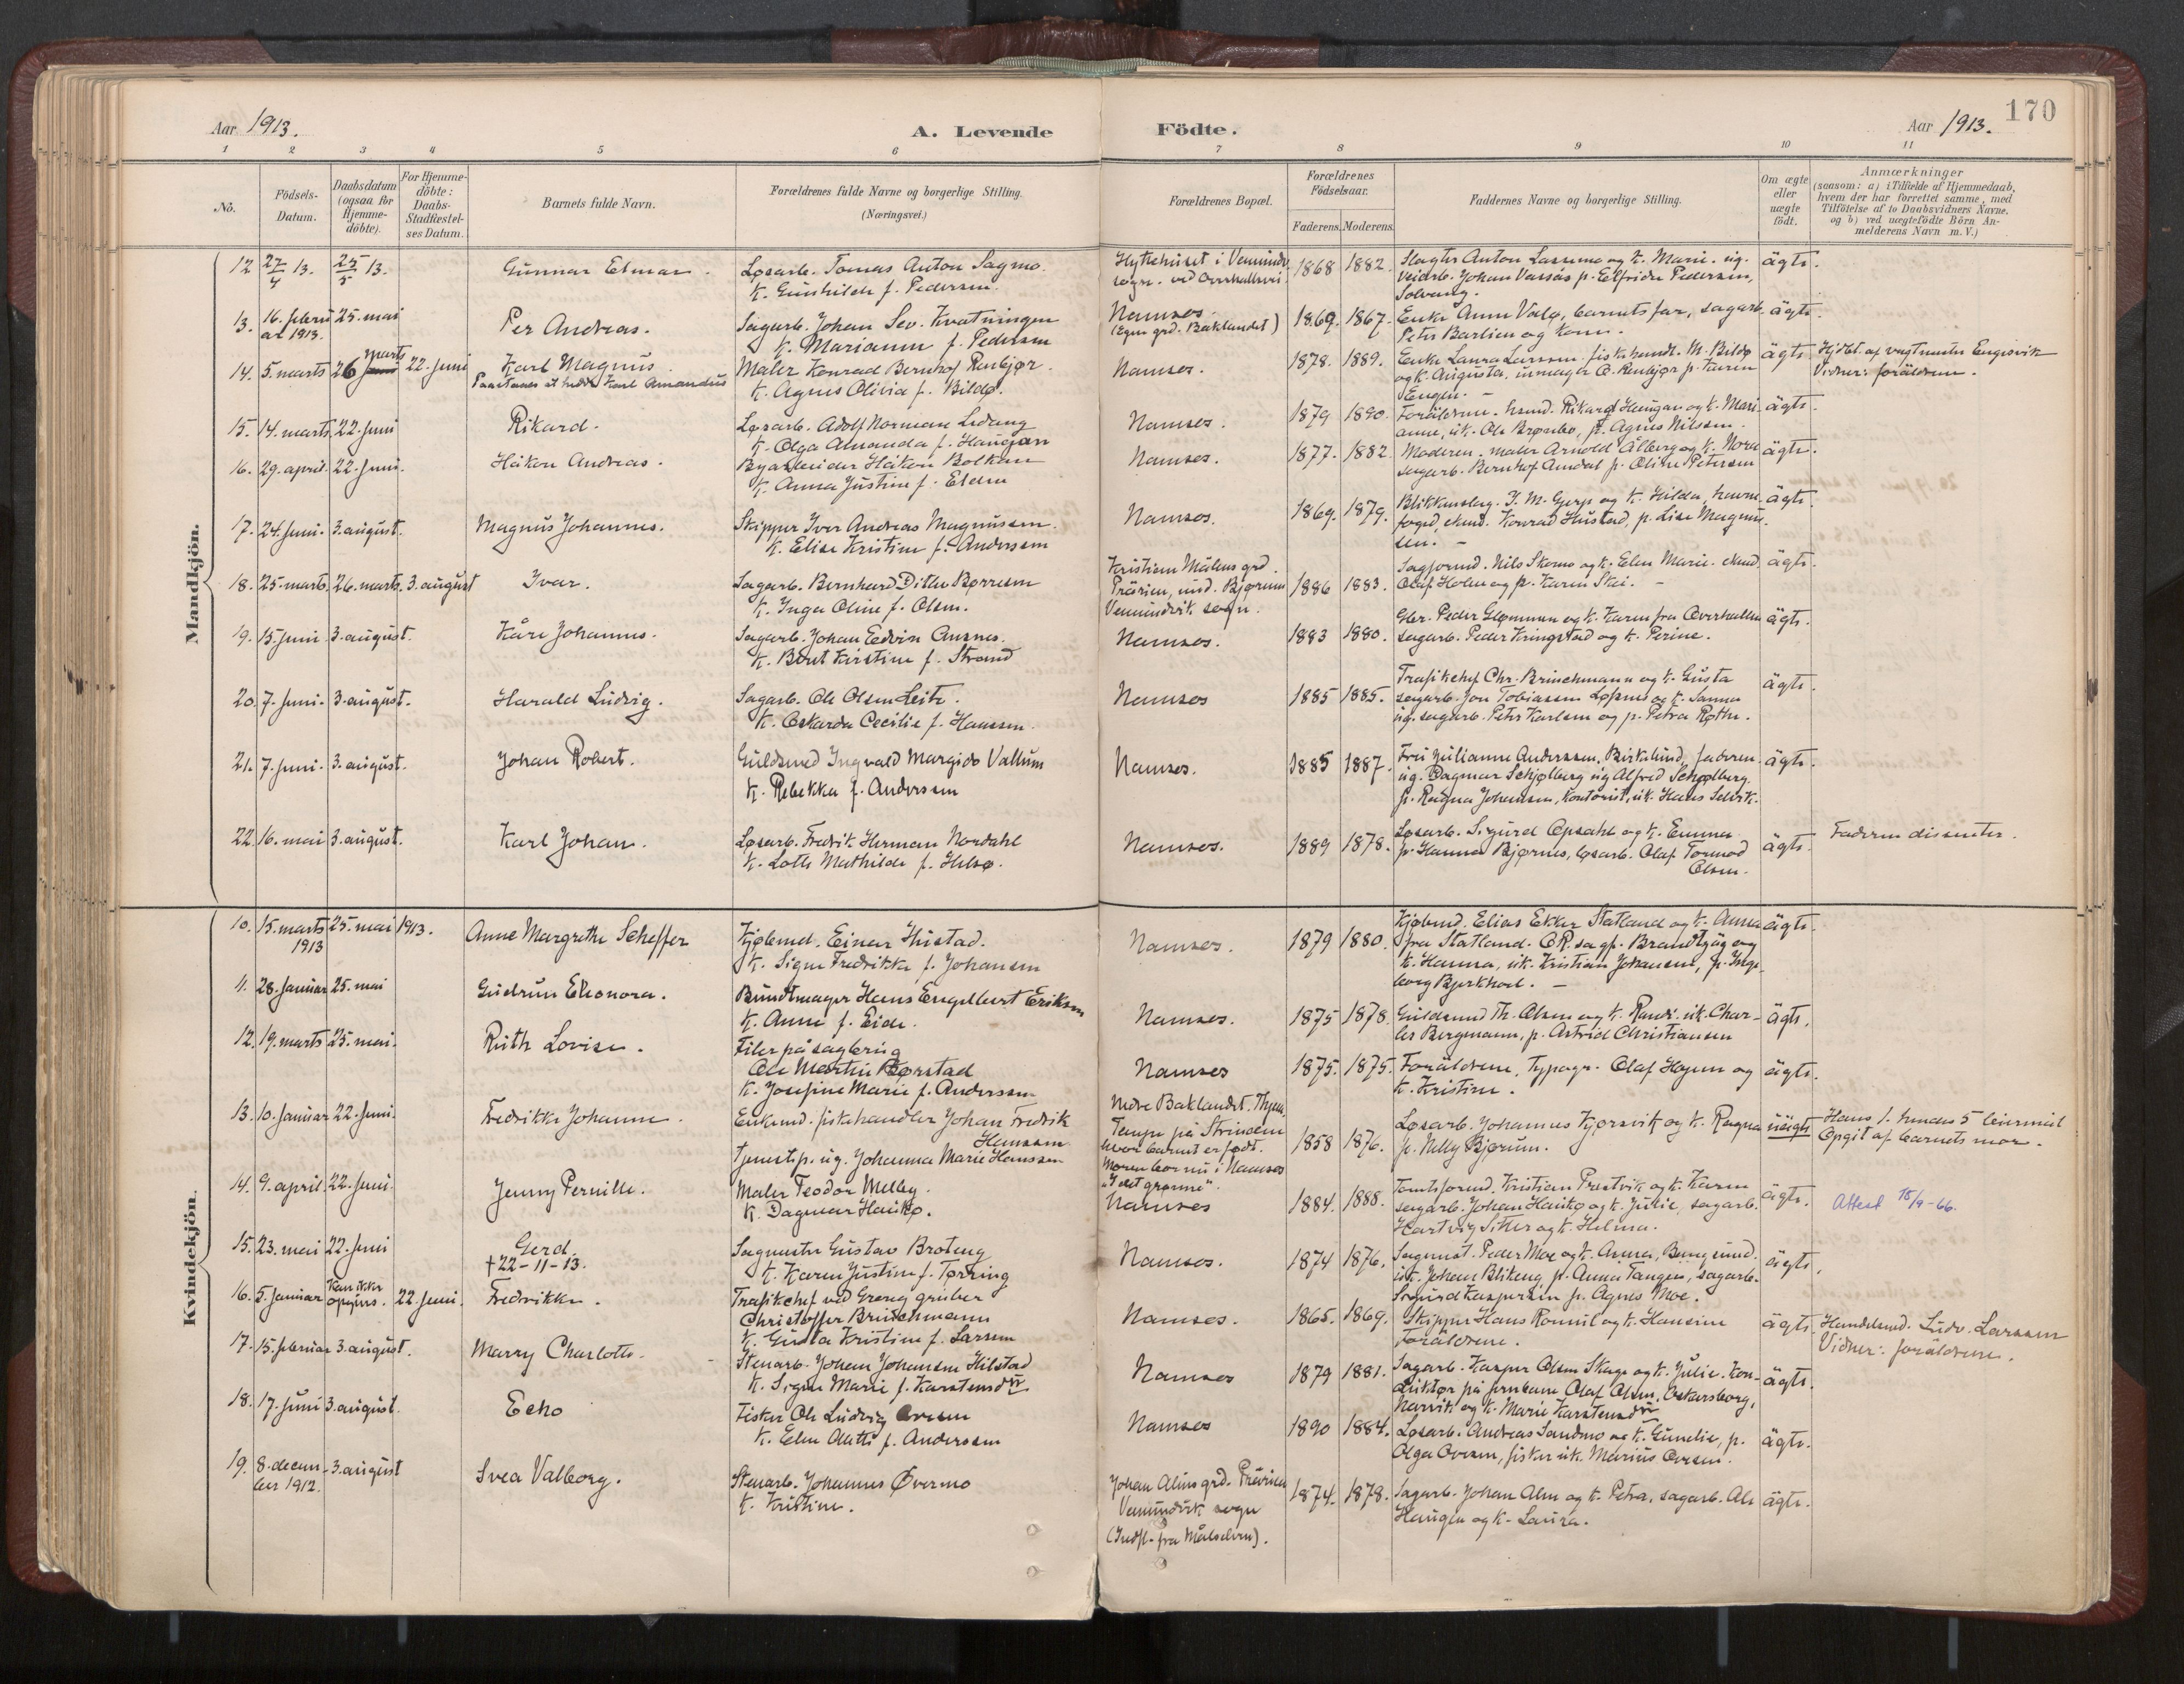 Aar 1913.
A. Levende
Födte.
Aar 1913.
170
1 2 3 4 5 6 7 8 9 10 11
No.
Födsels-Datum.
Daabsdatum (ogsaa for Hjemme-döbte).
For Hjemme-döbte: Daabs-Stadfæstel-ses Datum.
Barnets fulde Navn.
Forældrenes fulde Navne og borgerlige Stilling.
(Næringsvei.)
Forældrenes Bopæl.
Forældrenes Födselsaar.
Faderens. Moderens.
Faddernes Navne og borgerlige Stilling.
Om ægte eller uægte födt.
Anmærkninger
(saasom: a) i Tilfælde af Hjemmedaab,
hvem der har forrettet samme, med
Tilföielse af to Daabsvidners Navne,
og b) ved uægtefödte Börn An-
melderens Navn m. V.)
Mandkjön.
12 27/4 13. 25/5 13. Gunnar Elmar. Løsarb. Tomas Anton Sagmo.
K. Gunhilde f. Pedersen.
1868 1882. Slagter Anton Lassemo og k. Marie. ug.
veiarb. Johan Vassås p. Elfride Pedersen,
Solvang.
ägte.
13. 16. februar 1913. 25. mai Per Andreas. Sagarb. Johan Sev. Kvatningen
K. Marianne f. Pedersen
Namsos.
(Egen grd. Baklandet)
1869. 1867. Enke Anne Valø, barnets far, sagarb.
Peter Barlien og kone.
ägte.
14. 5. marts 26 marts 22. juni Karl Magnus.
Paastaaes at hedde Karl Amandus
Maler Konrad Bernhof Renbjør.
K. Agnes Olivia f. Bildø.
Namsos. 1878. 1889. Enke Laura Larssen. fiskehandl. M. Bildø
og k. Augusta, urmager O. Renbjør p. Karen
Engen. -
ägte. Hjdbt. af vagtmester Engesvik
Vidner: foräldrene.
15. 14. marts 22. juni Rikard. Løsarb. Adolf Norman Lidang
K. Olga Amanda f. Haugan
Namsos. 1879 1890. Foräldrene. hsmd. Rikard Haugan og k. Mari-
anne, uk. Ole Brønbo, p. Agnes Nilssen.
ägte.
16. 29. april. 22. juni. Håkon Andreas. Byarbeider Håkon Bolkan
K. Anna Justine f. Elden
Namsos. 1877. 1882. Moderen. maler Arnold Ålberg og k. Nora
sagarb. Bernhof Amdal p. Oline Petersen
ägte.
17. 24. juni. 3. august. Magnus Johannes. Skipper Iver Andreas Magnussen.
K. Elise Kristine f. Andersen
Namsos. 1869. 1879. Blikkenslag. J. M. Gjerp og k. Hilda, havne
foged, ekmd. Konrad Hustad, p. Lise Magnus-
sen. -
ägte.
18. 25. marts. 26. marts. 3. august Ivar. Sagarb. Bernhard Ditlev Børresen
K. Inga Oline f. Olsen.
Kristian Målens grd.
Prärien, und. Bjørum
Vemundvik sogn.
1886 1883. Sagformd. Nils Skomo og k. Elen Marie. ekmd.
Olaf Holm og p. Karen Skei. -
ägte.
19. 15. juni 3. august. Kåre Johannes. Sagarb. Johan Edvin Ausnes.
K. Berit Kirstine f. Strand
Namsos. 1883 1880. Gbr. Peder Glømmen og k. Karen fra Overhallen
sagarb. Peder Kringstad og k. Perine.
ägte.
20. 7. juni. 3. august. Harald Ludvig. Sagarb. Ole Olsen Leite.
K. Oskarda Cecilie f. Hanssen.
Namsos 1885 1885. Trafikchef Chr. Brinchmann og k. Gusta
sagarb. Jon Tobiassen Løfsnes og k. Sanna
ug. sagarb. Peter Karlsen og p. Petra Rothe.
ägte.
21. 7. juni. 3. august. Johan Robert. Guldsmed Ingvald Margido Vallum
K. Rebekka f. Andersen
Namsos. 1885 1887. Fru Julianne Anderssen, Birkelund, faderen
ug. Dagmar Schjølberg ug Alfred Schjølberg,
p. Ragna Johansen, kontorist, uk. Hans Selvik.
ägte.
22. 16. mai 3. august. Karl Johan. Løsarb. Fredrik Herman Nordahl
K. Lotte Mathilde f. Helbo.
Namsos. 1889 1878. Løsarb. Sigurd Opsahl og k. Emma
p. Hanna Bjørnes, løsarb. Olaf Tormod
Olsen.
ägte. Faderen dissenter.
Kvindekjön.
10. 15. marts 1913 25. mai 1913. Anne Margrethe Scheffer Kjøbmd. Einar Hustad.
K. Signe Fredrikke f. Johansen
Namsos. 1879 1880. Kjøbmd. Elias Ekker Statland og k. Anna
fra Statland. O.R. sagf. Brandtzæg og
k. Hanna, uk. Kristian Johansen, p. Inge-
borg Bjerkhoel. -
ägte.
11. 28. januar 25. mai Gudrun Eleonora. Bundtmager Hans Engelbert Eriksen
K. Anne f. Eide.
Namsos. 1875 1878. Guldsmd Th. Olsen og k. Randi. uk. Char-
les Bergmann, p. Astrid Christiansen
ägte.
12. 19. marts 25. mai. Ruth Lovise. Filer på sagbrug
Ole Martin Børstad
K. Josefine Marie f. Andersen
Namsos 1875. 1875. Foräldrene, Typogr. Olaf Hagen og
k. Kristine.
ägte.
13. 10. januar 22. juni. Fredrikke Johanne. Enkemd. fiskehandler Johan Fredrik
Hanssen
tjenestp. ug. Johanna Marie Hanssen
Nedre Baklandet. Thjem.
Tempe på Strinden
hvor barnet er født.
Moren bor nu i Namsos
"I det grønne".
1858 1876. Løsarb. Johannes Kjørsvik og k. Ragna
p. Nelly Bjørum.
uägte Hans 1. hendes 5 leiermål
Opgit af barnets mor.
14. 9. april. 22. juni. Jenny Pernille. Maler Teodor Melby.
K. Dagmar Haukø.
Namsos 1884. 1888. Tomtsformd. Kristian Prestvik og k. Karen
sagarb. Johan Haukø og k. Julie, sagarb.
Hartvig Sither og k. Helma.
ägte. Attest 15/9-66.
15. 23. mai 22. juni Gerd.
+22-11-13.
Sagmester Gustav Broteng
K. Karen Justine f. Tørring
Namsos. 1874 1876. Sagmest. Peder Moe og k. Anna,
uk. Johan Blikeng, p. Anna Tangen, sagarb.
Sigurd Kaspersen p. Agnes Moe.
ägte.
16. 5. januar Kan ikke opgives. 22. juni. Fredrikke. Trafikchef ved Grong gruber
Christoffer Brinchmann
K. Gusta Kristine f. Larsen
Namsos. 1865. 1869. Skipper Hans Romuld og k. Hansine
Foräldrene.
ägte. Handelsmd. Ludv. Larssen
Vidner: foräldrene.
17. 15. februar 3. august. Marry Charlotte. Stenarb. Johan Johansen Hilstad
K. Signe Marie f. Karstensdtr
Namsos 1879 1881. Sagarb. Kasper Olsen Skage og k. Julie. Kon-
duktør på jernbane Olaf Olsen, Oskarsborg,
Narvik og k. Marie Karstensdtr
ägte.
18. 17. juni 3. august. Echo Fisker Ole Ludvig Ovesen
K. Elen Aletti f. Andersen
Namsos 1890 1884. Løsarb. Andreas Sandmo og k. Gunelie, p.
Olga Ovesen, fisker uk. Marius Ovesen.
ägte.
19. 8. decem-ber 1912. 3. august Svea Valborg. Stenarb. Johannes Øvermo
K. Kristine.
Johan Alms grd. Prärien
Vemundvik sogn
(Indfl. fra Målselven).
1874. 1878. Sagarb. Johan Alm og k. Petra, sagarb. Ole
Haugen og k. Laura.
ägte.